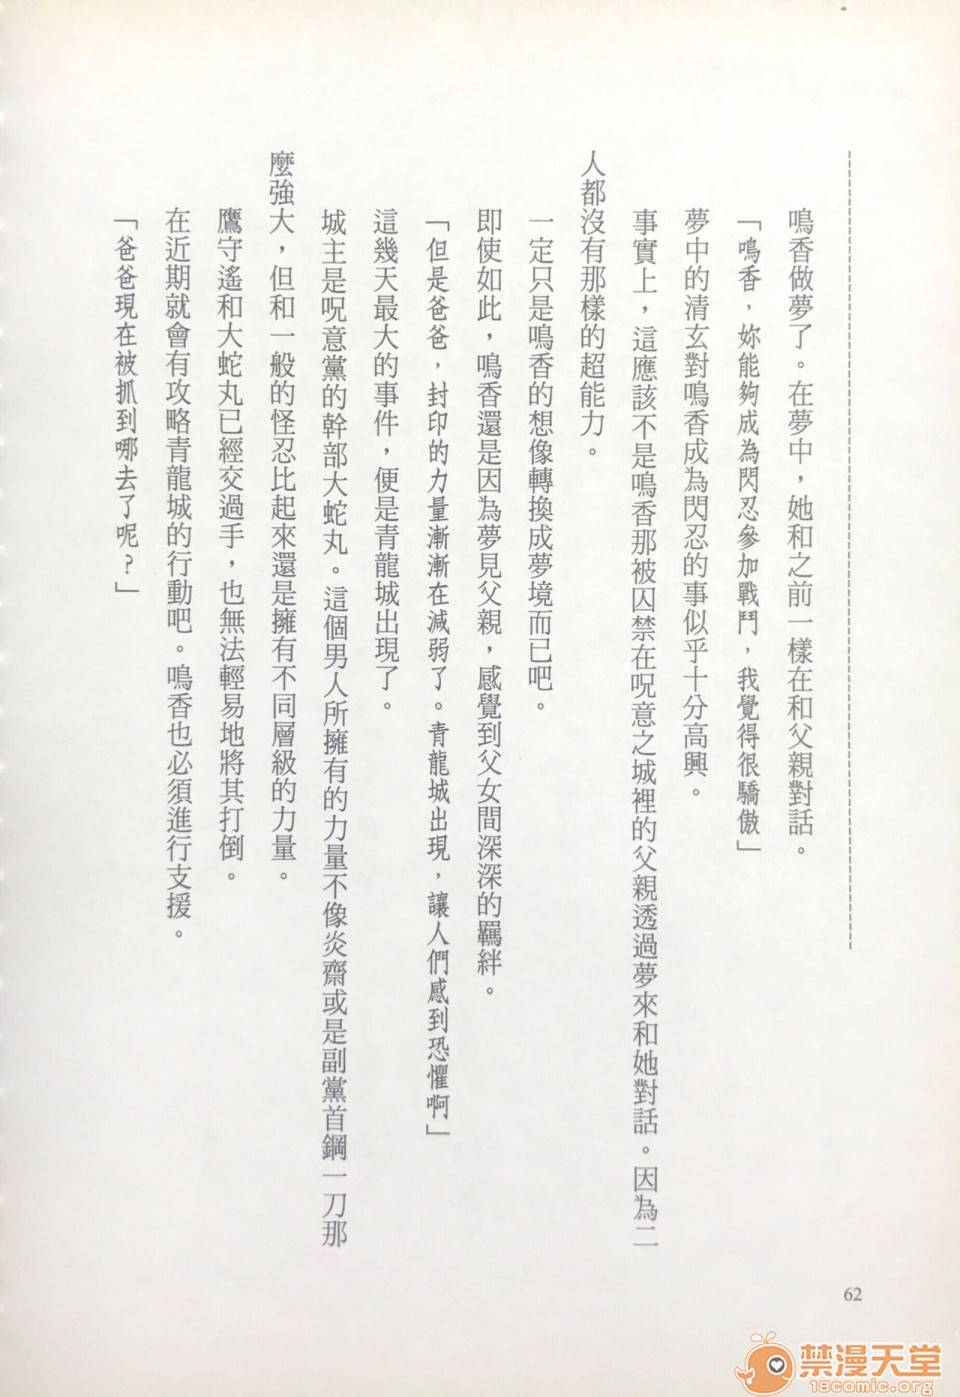 鳴香做夢了。在夢中，她和之前一樣在和父親對話。
「鳴香，妳能夠成為閃忍參加戰鬥，我覺得很驕傲」
夢中的清玄對鳴香成為閃忍的事似乎十分高興。
事實上，這應該不是鳴香那被囚禁在呪意之城裡的父親透過夢來和她對話。因為二
人都沒有那樣的超能力。
一定只是鳴香的想像轉換成夢境而已吧。
即使如此，鳴香還是因為夢見父親，感覺到父女間深深的羈絆。
「但是爸爸，封印的力量漸漸在減弱了。青龍城出現，讓人們感到恐懼啊」
這幾天最大的事件，便是青龍城出現了。
城主是呪意黨的幹部大蛇丸。這個男人所擁有的力量不像炎齋或是副黨首鋼一刀那
麼強大，但和一般的怪忍比起來還是擁有不同層級的力量。
鷹守遙和大蛇丸已經交過手，也無法輕易地將其打倒。
在近期就會有攻略青龍城的行動吧。鳴香也必須進行支援。
「爸爸現在被抓到哪去了呢？」
62
禁漫天堂
18comic.org